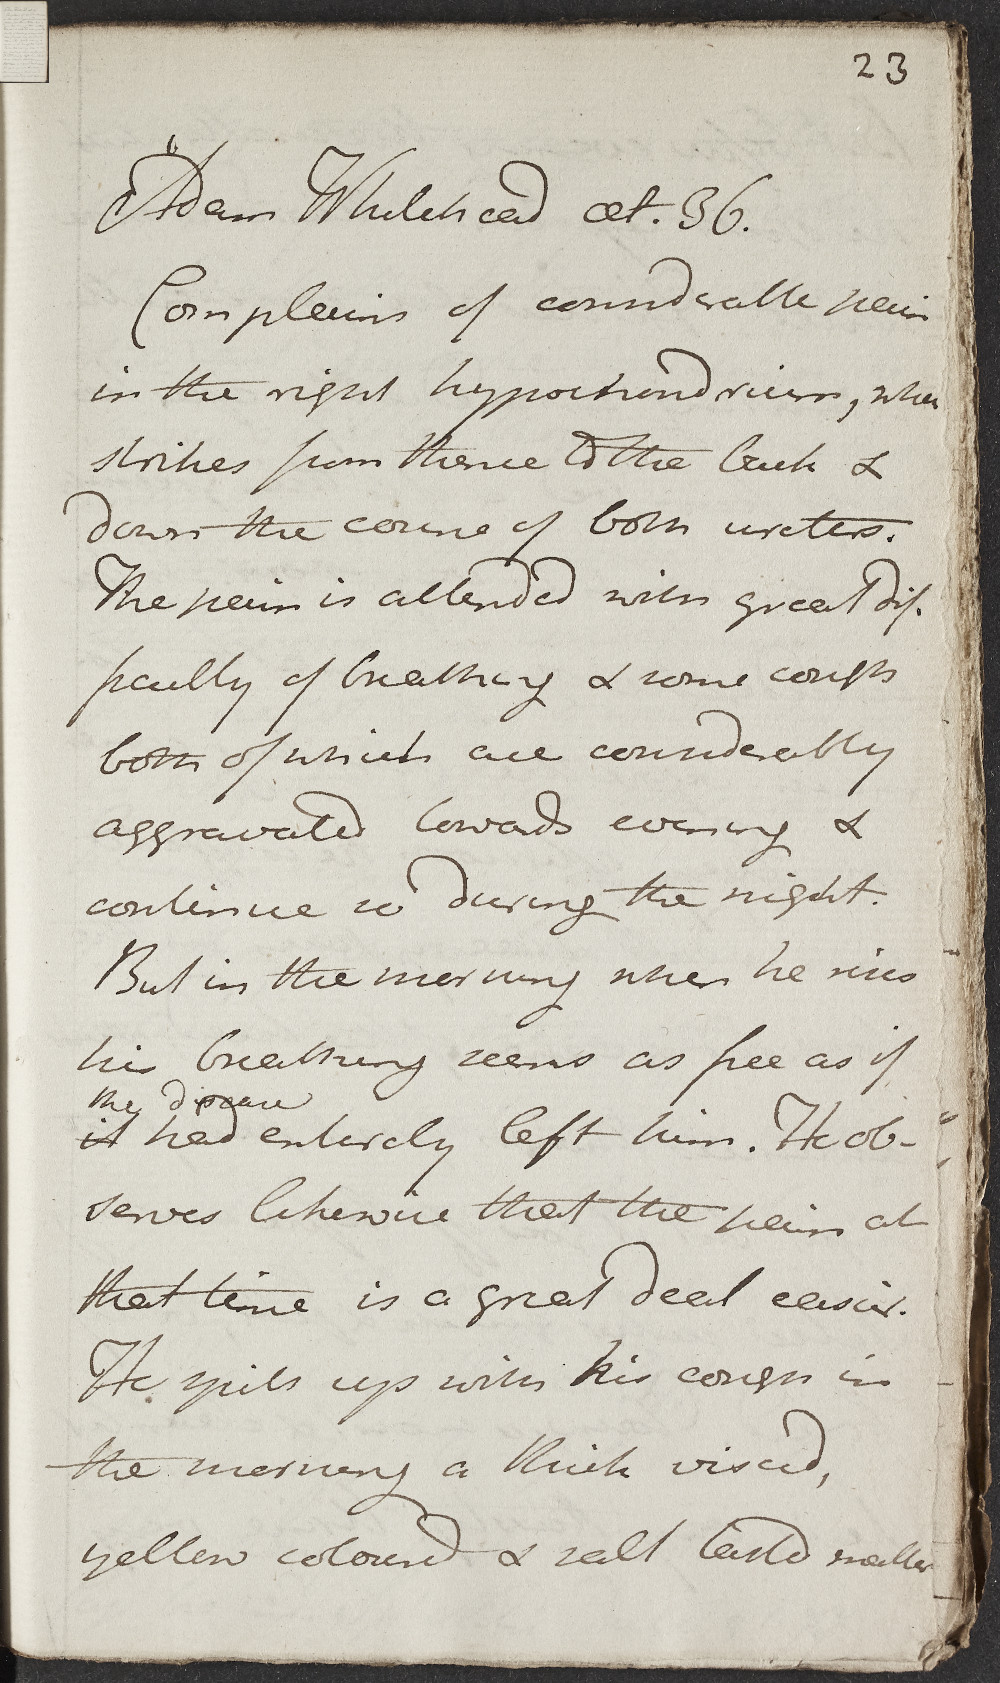 23
Adam Whitehead æt. 36.
Complains of considerable pain
in the right hypochondrium, when
strikes from thence to the back &
down the course of both ureters.
The pain is attended with great dif-
ficulty of breathing & some cough
both of which are considerably
aggravated towards evening &
continue so during the night.
But in the morning when he rises
his breathing seems as free as if
the disease
it had entirely left him. He ob-
serves likewise that the pain at
that time is a great deal easier.
He spits up with his cough in
the morning a thick viscid,
yellow coloured & salt tasted matter